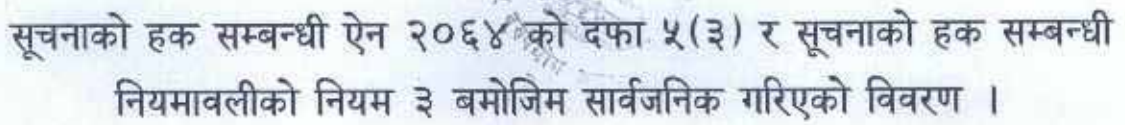 सूचनाको हक सम्बन्धी ऐन २०६४ को दफा ५(३) र सूचनाको हक सम्बन्धी
नियमावलीको नियम ३ बमोजिम सार्वजनिक गरिएको विवरण ।